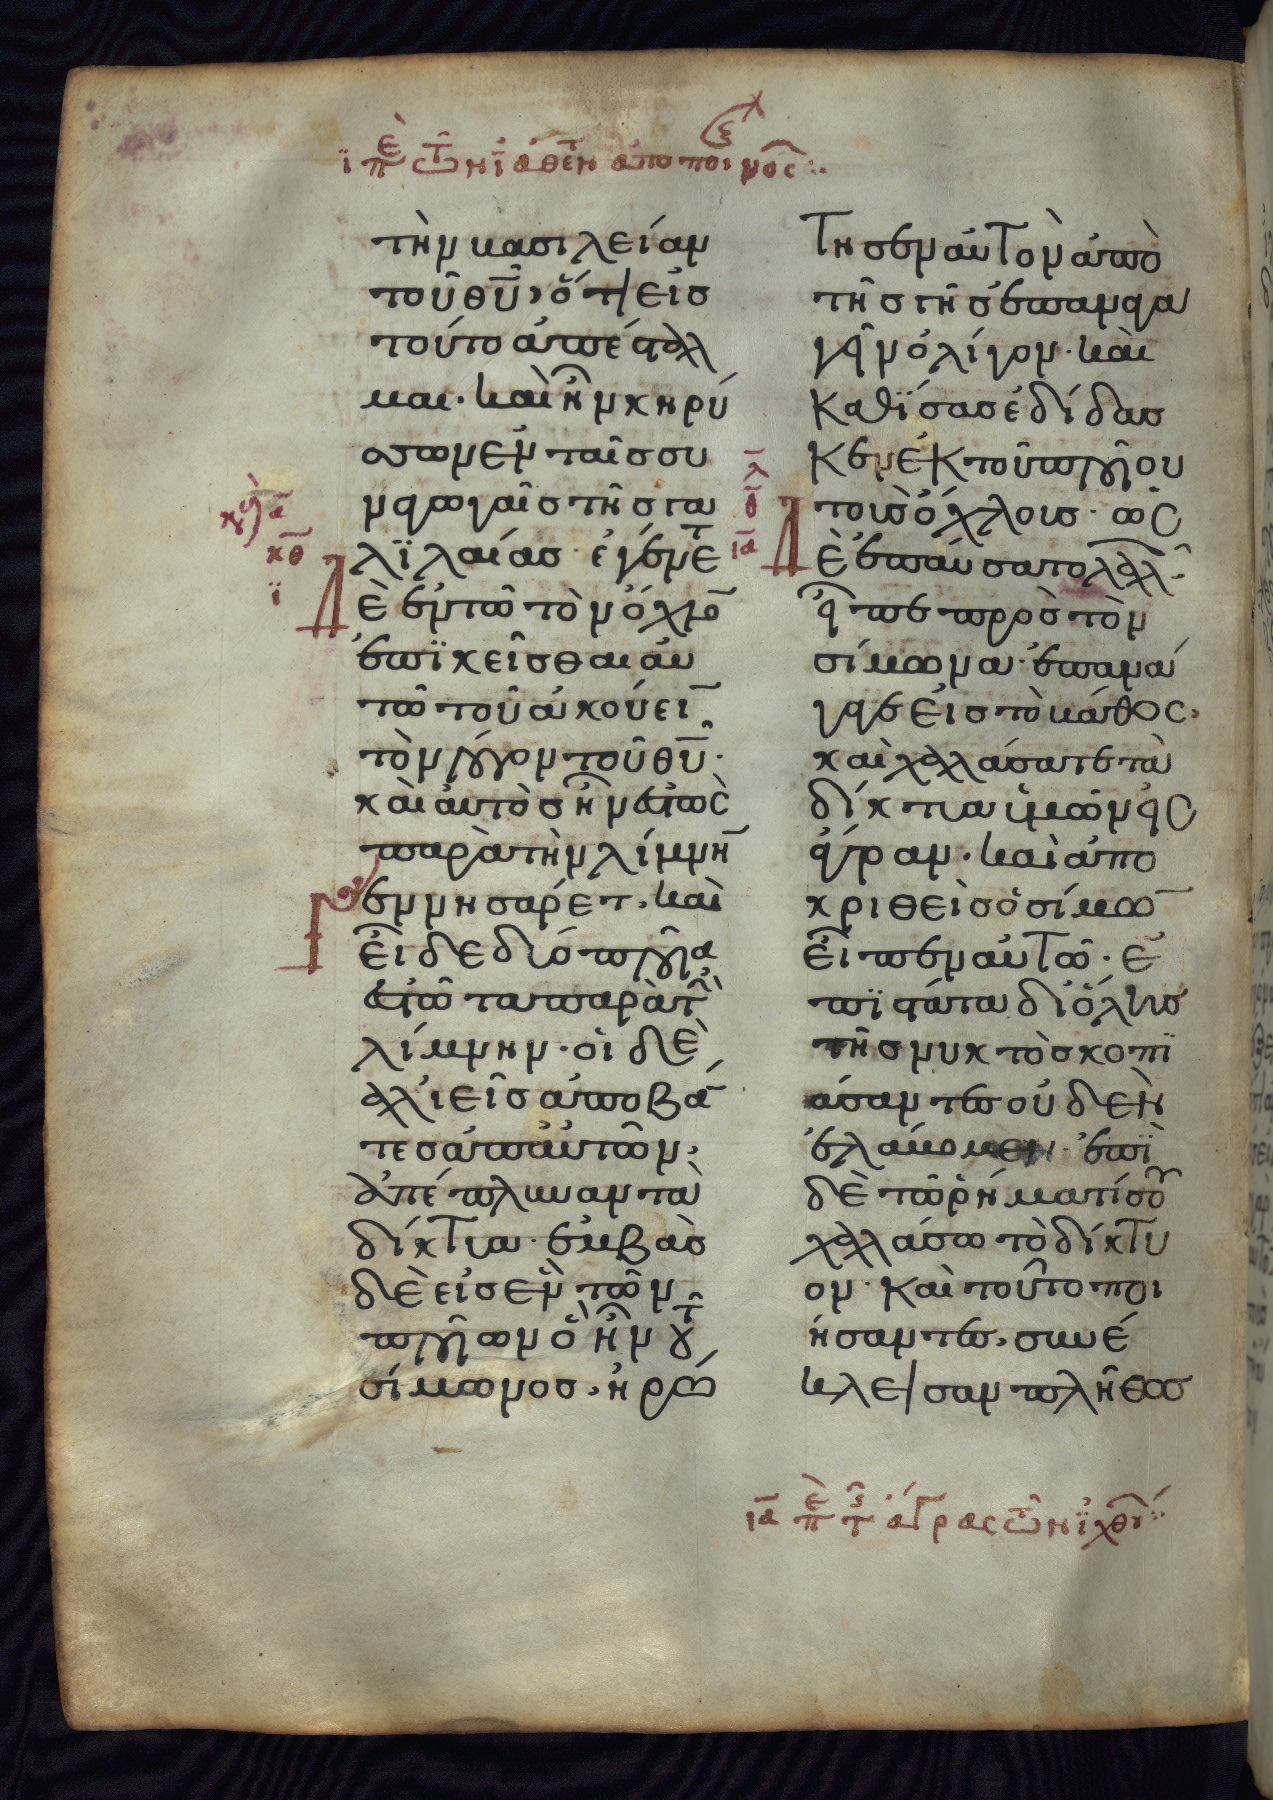 ξ
ϊ πε τῶν ἰαθέν ἀπο ποι νος
τὴν βασιλείαν
τοῦ θῦ, ὅτι εἰσ
τοῦτο ἀπέσταλ
μαι. καὶ ἦν κηρύ
σσων ἐν ταῖσ συ
ναγωγαῖσ τῆσ γα
κθ
ϊ
λϊλαίασ· ἐγένετ
Δὲ ἐν τῶ τὸν ὄχλο̄
ἐπϊκεῖσθαι αὐ
τῶ τοῦ ἀκούεῑ
τὸν λόγον τοῦ θῦ·
καὶ αὐτὸσ ἦν ἑστὼς
παρὰ τὴν λίμνη̄
Γεννησαρέτ. καὶ
εἶδε δύο πλοῖα
ἑστῶτα παρὰ τὴν
λίμνην· οἱ δὲ
ἁλιεῖσ ἀποβά̄
τεσ ἀπ αὐτῶν,
ἀπέπλυναν τὰ
δίκτυα· ἐμβὰσ
δὲ εἰσ ἓν τῶν
πλοίων ὃ ἦν τοῦ
σίμωνοσ, ἠρώ
τησεν αὐτὸν ἀπὸ
τῆσ γῆσ ἐπαναγα
γεῖν ὀλίγον· καὶ
καθϊσασ ἐδίδασ
κεν ἐκ τοῦ πλοίου
λ
θ
ια
τοὺσ ὄχλουσ· ὡς
Δὲ ἐπαύσατο λαλῶν·
εἶπε πρὸσ τὸν
σίμωνα· ἐπανά
γαγε εἰσ τὸ βάθος,
καὶ χαλάσατε τὰ
δίκτυα ὑμῶν εἰς
ἄγραν. καὶ ἀπο
κριθεὶσ ὁ σίμω̄
εἶπεν αὐτῶ· ἐ
πϊστάτα δι ὅλησ
τῆσ νυκτὸσ κοπϊ
άσαντεσ οὐδὲν
ἐλάβομεν· ἐπϊ
δὲ τῶ ῥήματί σου
χαλάσω τὸ δίκτυ
ον· καὶ τοῦτο ποι
ήσαντεσ, συνέ
κλεισαν πλῆθοσ
ια πε τ ἄγρας τῶν ἰχθύ